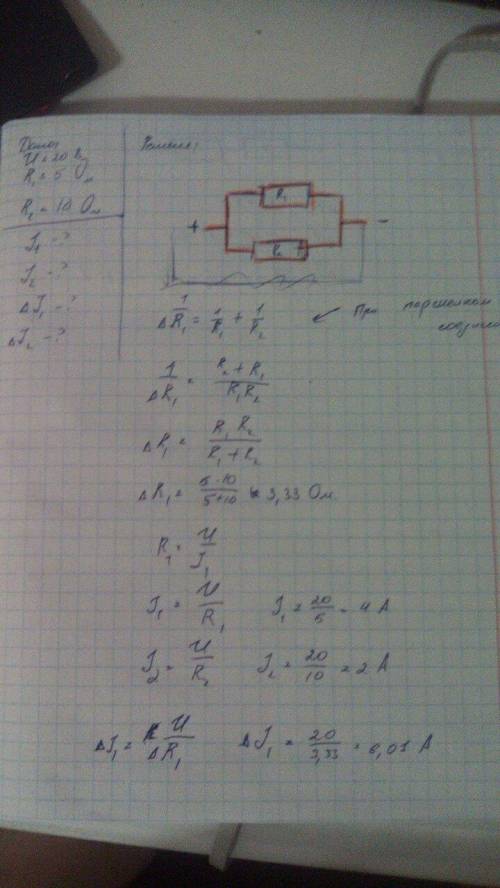 Дано:
U = 20 В
R₁ = 5 Ом
R₂ = 10 Ом
J₁ - ?
J₂ - ?
ΔJ₁ - ?
ΔJ₂ - ?
Решение:
R₁
+ -
R₂
1/ΔR₁ = 1/R₁ + 1/R₂
← При
1/ΔR₁ = (R₂ + R₁)/(R₁R₂)
ΔR₁ = (R₁ R₂)/(R₁ + R₂)
ΔR₁ = (5·10)/(5+10) = 3,33 Ом
R₁ = U/J₁
J₁ = U/R₁ J₁ = 20/5 = 4 А
J₂ = U/R₂ J₂ = 20/10 = 2 А
ΔJ₁ = U/ΔR₁ ΔJ₁ = 20/3,33 = 6,01 А